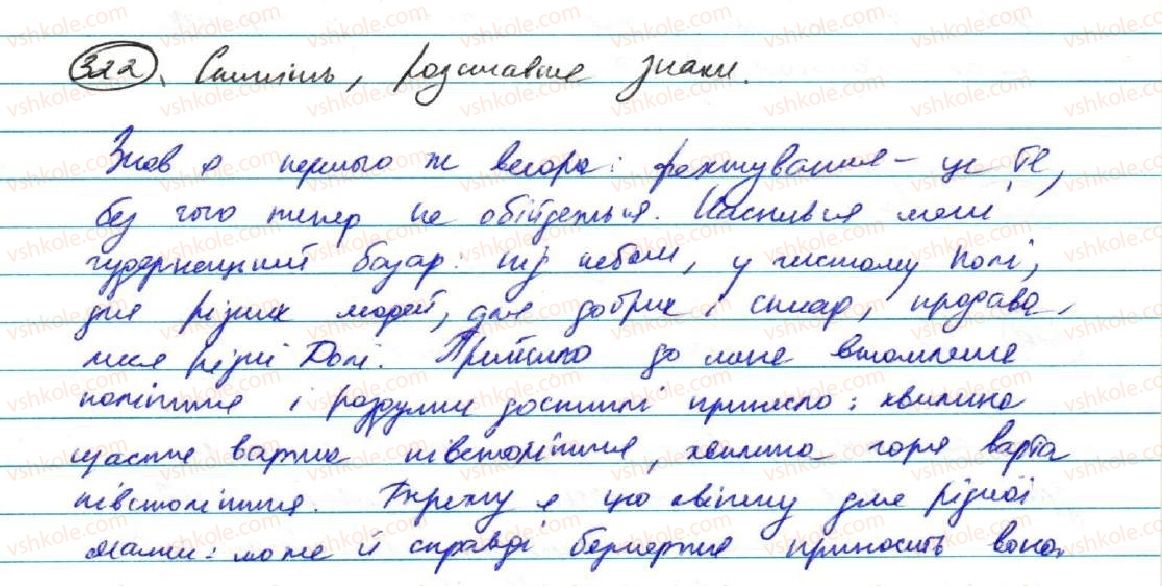 322. Спишіть, розставте знаки.
Знав я першого ж вечора: фехтування – це те,
без чого тепер не обійдеться. Наснився мені
чудернацький базар: під небом, у чистому полі,
для різних людей, для добрих і скнар, продава-
лися різні Долі. Прийшло до мене втомлене
поліття і роздуми достиглі принесло: хвилина
щастя варта півстоліття, хвилина горя варта
півстоліття. Бережу я цю квітину для рідної
мами: може й справді безсмертя приносить вона.